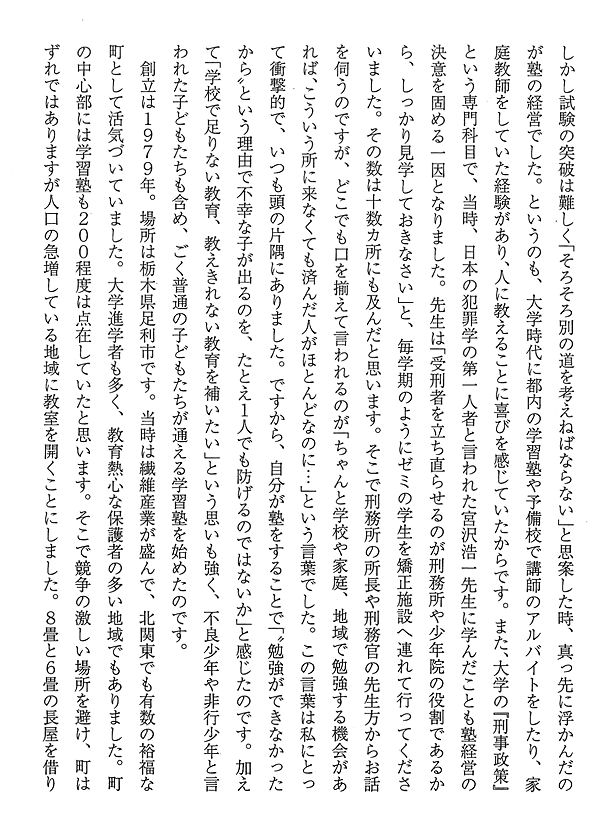 しかし試験の突破は難しく「そろそろ別の道を考えねばならない」と思案した時、真っ先に浮かんだの
が塾の経営でした。というのも、大学時代に都内の学習塾や予備校で講師のアルバイトをしたり、家
庭教師をしていた経験があり、人に教えることに喜びを感じていたからです。また、大学の『刑事政策』
という専門科目で、当時、日本の犯罪学の第一人者と言われた宮沢浩一先生に学んだことも塾経営の
決意を固める一因となりました。先生は「受刑者を立ち直らせるのが刑務所や少年院の役割であるか
ら、しっかり見学しておきなさい」と、毎学期のようにゼミの学生を矯正施設へ連れて行ってくださ
いました。その数は十数カ所にも及んだと思います。そこで刑務所の所長や刑務官の先生方からお話
を伺うのですが、どこでも口を揃えて言われるのが「ちゃんと学校や家庭、地域で勉強する機会があ
れば、こういう所に来なくても済んだ人がほとんどなのに…」という言葉でした。この言葉は私にとっ
て衝撃的で、いつも頭の片隅にありました。ですから、自分が塾をすることで「〝勉強ができなかった
から〟という理由で不幸な子が出るのを、たとえ1人でも防げるのではないか」と感じたのです。加え
て「学校で足りない教育、教えきれない教育を補いたい」という思いも強く、不良少年や非行少年と言
われた子どもたちも含め、ごく普通の子どもたちが通える学習塾を始めたのです。
創立は1979年。場所は栃木県足利市です。当時は繊維産業が盛んで、北関東でも有数の裕福な
町として活気づいていました。大学進学者も多く、教育熱心な保護者の多い地域でもありました。町
の中心部には学習塾も200程度は点在していたと思います。そこで競争の激しい場所を避け、町は
ずれではありますが人口の急増している地域に教室を開くことにしました。8畳と6畳の長屋を借り